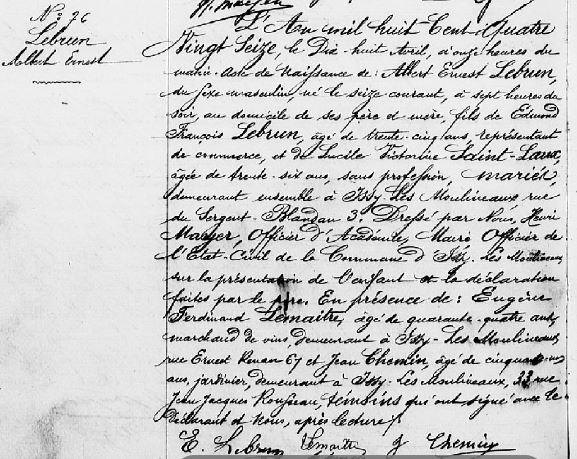 N: 76
Lebrun
Albert Ernest
L'An mil huit Cent Quatre
Vingt Seize, le Dix huit Avril, à onze heures du
matin. Acte de Naissance de: Albert Ernest Lebrun,
du sexe masculin, né le seize courant, à sept heures du
soir, au domicile de ses père et mère, fils de Edmond
François Lebrun, âgé de trente-cinq ans, représentant
de commerce, et de Lucile Victorine Saint-
âgée de trente-six ans, sans profession, mariés,
demeurant ensemble à Issy-Les Moulineaux rue
du Sergent-Blandan 3. Dressé par Nous, Henri
Mayer, Officier d'Académie, Maire Officier de
l'Etat-Civil de la Commune d'Issy-Les Moulineaux
sur la présentation de l'enfant et la déclaration
faites par le père. En présence de: Eugène
Ferdinand Lemaitre, âgé de quarante-quatre ans,
marchand de vins, demeurant à Issy-Les Moulineaux,
rue Ernest Renan 67 et Jean Chemin, âgé de cinquante
ans, jardinier, demeurant à Issy-Les Moulineaux, 33 rue
Jean Jacques Rousseau, témoins qui ont signé avec le
Déclarant et Nous, après lecture.
E. Lebrun Lemaitre J Chemin